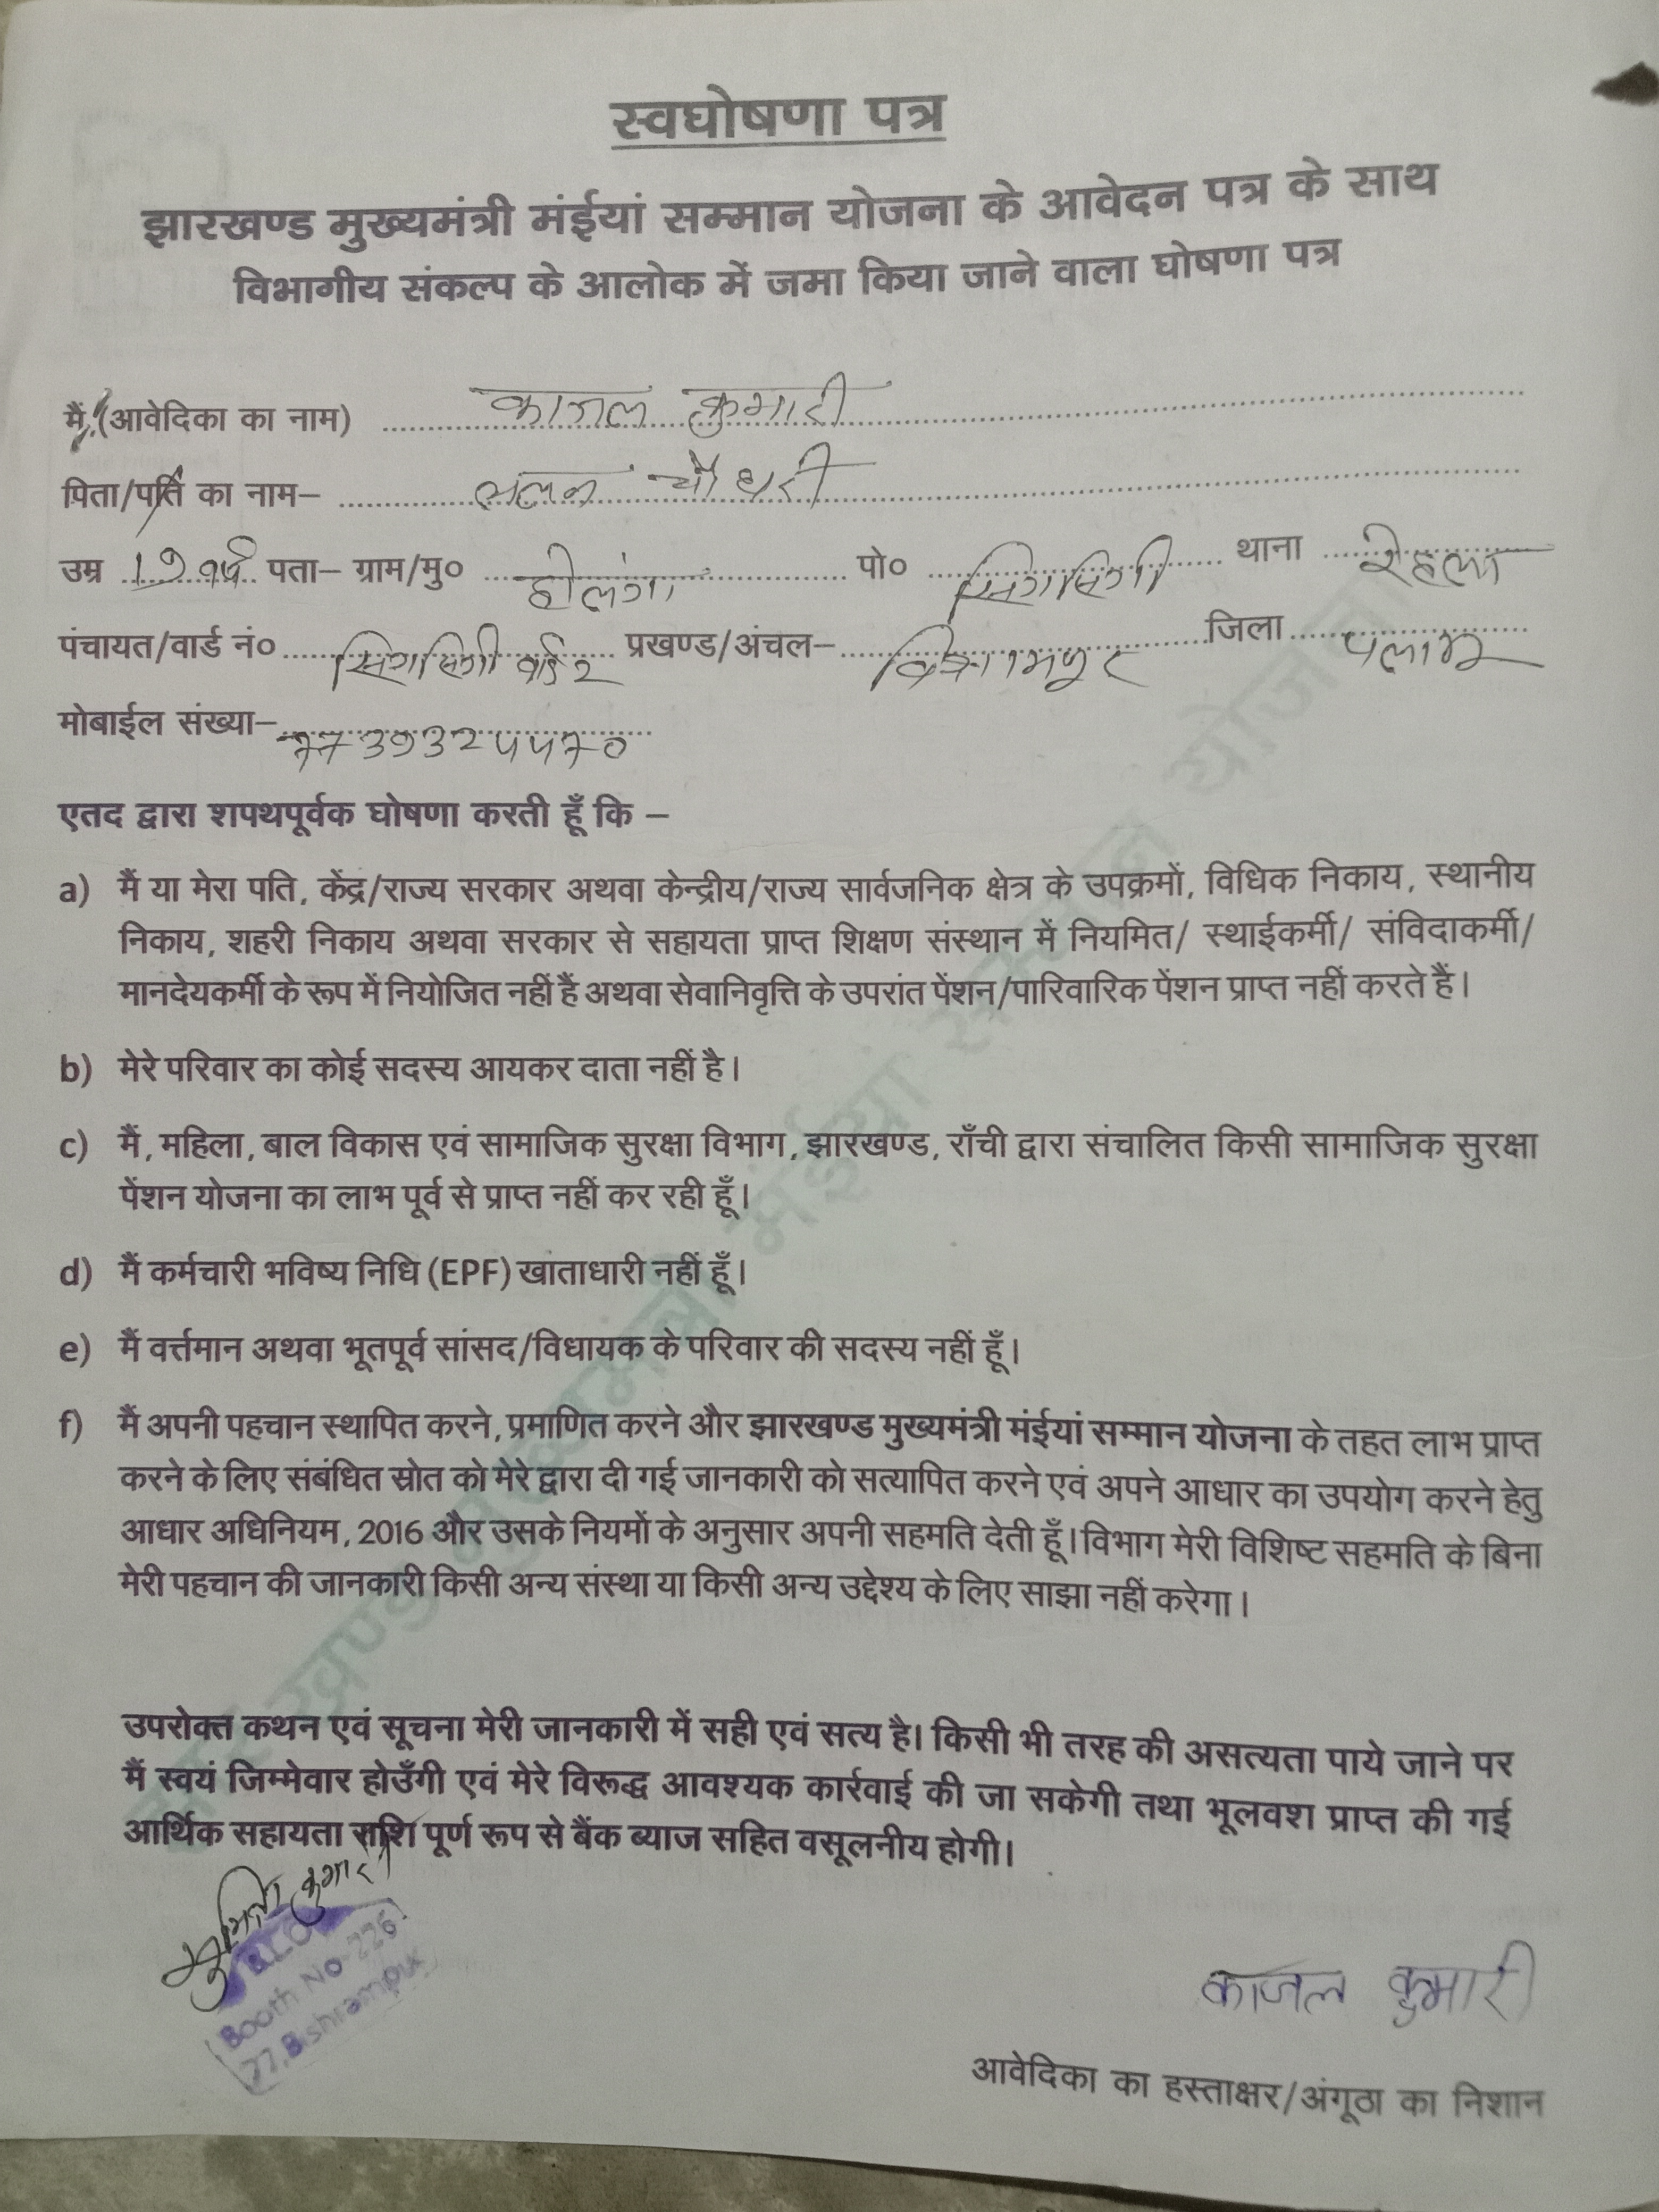 स्वघोषणा पत्र
झारखण्ड मुख्यमंत्री मंईयां सम्मान योजना के आवेदन पत्र के साथ
विभागीय संकल्प के आलोक में जमा किया जाने वाला घोषणा पत्र
मैं, (आवेदिका का नाम) काजल कुमारी
पिता/पति का नाम– ललन चौधरी
उम्र 19 वर्ष पता– ग्राम/मु० पो० सिगसिगी थाना रेहला
पंचायत/वार्ड नं० सिगसिगी वार्ड 2 प्रखण्ड/अंचल– विश्रामपुर जिला पलामू
मोबाईल संख्या–
एतद द्वारा शपथपूर्वक घोषणा करती हूँ कि –
a) मैं या मेरा पति, केंद्र/राज्य सरकार अथवा केन्द्रीय/राज्य सार्वजनिक क्षेत्र के उपक्रमों, विधिक निकाय, स्थानीय
निकाय, शहरी निकाय अथवा सरकार से सहायता प्राप्त शिक्षण संस्थान में नियमित/ स्थाईकर्मी/ संविदाकर्मी/
मानदेयकर्मी के रूप में नियोजित नहीं हैं अथवा सेवानिवृत्ति के उपरांत पेंशन/पारिवारिक पेंशन प्राप्त नहीं करते हैं।
b) मेरे परिवार का कोई सदस्य आयकर दाता नहीं है।
c) मैं, महिला, बाल विकास एवं सामाजिक सुरक्षा विभाग, झारखण्ड, राँची द्वारा संचालित किसी सामाजिक सुरक्षा
पेंशन योजना का लाभ पूर्व से प्राप्त नहीं कर रही हूँ।
d) मैं कर्मचारी भविष्य निधि (EPF) खाताधारी नहीं हूँ।
e) मैं वर्त्तमान अथवा भूतपूर्व सांसद/विधायक के परिवार की सदस्य नहीं हूँ।
f) मैं अपनी पहचान स्थापित करने, प्रमाणित करने और झारखण्ड मुख्यमंत्री मंईयां सम्मान योजना के तहत लाभ प्राप्त
करने के लिए संबंधित स्रोत को मेरे द्वारा दी गई जानकारी को सत्यापित करने एवं अपने आधार का उपयोग करने हेतु
आधार अधिनियम, 2016 और उसके नियमों के अनुसार अपनी सहमति देती हूँ। विभाग मेरी विशिष्ट सहमति के बिना
मेरी पहचान की जानकारी किसी अन्य संस्था या किसी अन्य उद्देश्य के लिए साझा नहीं करेगा।
उपरोक्त कथन एवं सूचना मेरी जानकारी में सही एवं सत्य है। किसी भी तरह की असत्यता पाये जाने पर
मैं स्वयं जिम्मेवार होउँगी एवं मेरे विरूद्ध आवश्यक कार्रवाई की जा सकेगी तथा भूलवश प्राप्त की गई
आर्थिक सहायता राशि पूर्ण रूप से बैंक ब्याज सहित वसूलनीय होगी।
कुमारी
BLO
Booth No-226
77, Bishrampur
काजल कुमारी
आवेदिका का हस्ताक्षर/अंगूठा का निशान
झारखण्ड मुख्यमंत्री मंईयां सम्मान योजना